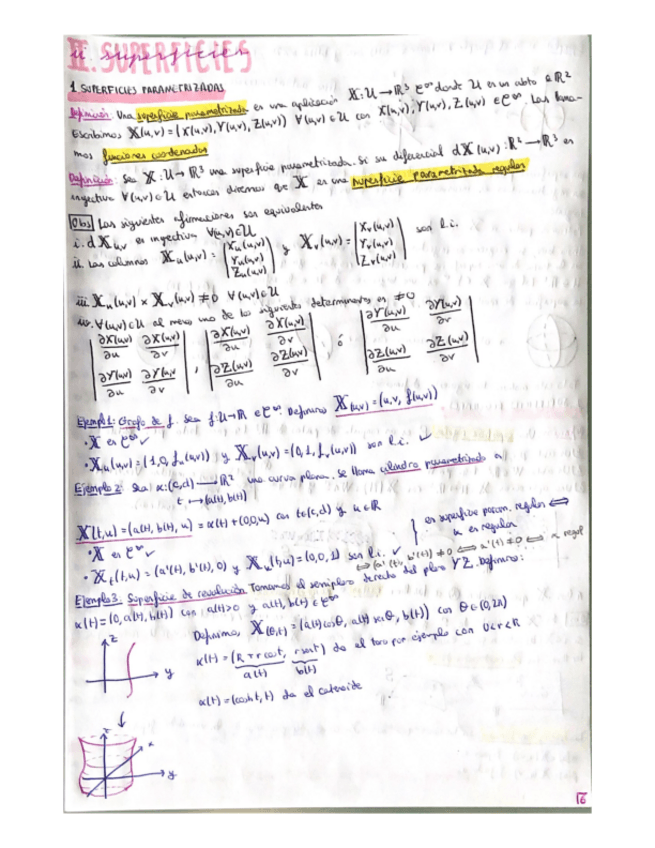 II. SUPERFICIES
1 SUPERFICIES PARAMETRIZADAS
Definición: Una superficie parametrizada es una aplicación 𝕏: U → ℝ³ C^∞ donde U es un abto de ℝ²
Escribimos 𝕏(u,v) = (X(u,v), Y(u,v), Z(u,v)) ∀(u,v) ∈ U con X(u,v), Y(u,v), Z(u,v) ∈ C^∞. Las llama-
mos funciones coordenadas
Definición: Sea 𝕏: U → ℝ³ una superficie parametrizada. Si su diferencial d𝕏(u,v): ℝ² → ℝ³ es
inyectiva ∀(u,v) ∈ U entonces diremos que 𝕏 es una superficie parametrizada regular
Obs Las siguientes afirmaciones son equivalentes
i. d𝕏u,v es inyectiva ∀(u,v) ∈ U
ii. Las columnas 𝕏u(u,v) = (Xu(u,v) Yu(u,v) Zu(u,v)) y 𝕏v(u,v) = (Xv(u,v) Yv(u,v) Zv(u,v)) son l.i.
iii. 𝕏u(u,v) × 𝕏v(u,v) ≠ 0 ∀(u,v) ∈ U
iv. ∀(u,v) ∈ U al menos uno de los siguientes determinantes es ≠ 0
| ∂X(u,v)/∂u ∂X(u,v)/∂v | , | ∂X(u,v)/∂u ∂X(u,v)/∂v | ó | ∂Y(u,v)/∂u ∂Y(u,v)/∂v |
| ∂Y(u,v)/∂u ∂Y(u,v)/∂v | | ∂Z(u,v)/∂u ∂Z(u,v)/∂v | | ∂Z(u,v)/∂u ∂Z(u,v)/∂v |
Ejemplo 1: Grafo de f. Sea f: U → ℝ ∈ C^∞. Definimos 𝕏(u,v) = (u, v, f(u,v))
· 𝕏 es C^∞ ✓
· 𝕏u(u,v) = (1, 0, fu(u,v)) y 𝕏v(u,v) = (0, 1, fv(u,v)) son l.i. ✓
Ejemplo 2: Sea α: (c,d) → ℝ² una curva plana. Se llama cilindro parametrizado a
t → (a(t), b(t))
𝕏(t,u) = (a(t), b(t), u) = α(t) + (0,0,u) con t ∈ (c,d) y u ∈ ℝ
· 𝕏 es C^∞ ✓
es superficie param. regular ⟺ α es regular
· 𝕏t(t,u) = (a'(t), b'(t), 0) y 𝕏u(t,u) = (0,0,1) son l.i. ✓
⟺ (a'(t), b'(t)) ≠ 0 ⟺ α'(t) ≠ 0 ⟺ α regul
Ejemplo 3. Superficie de revolución Tomamos el semiplano derecho del plano YZ. Definimos:
α(t) = (0, a(t), b(t)) con a(t) > 0 y a(t), b(t) ∈ C^∞
Definimos 𝕏(θ,t) = (a(t)cosθ, a(t)senθ, b(t)) con θ ∈ (0,2π)
α(t) = (R + r cos t, r sen t) da el toro por ejemplo con 0 < r < R
a(t) b(t)
α(t) = (cosh t, t) da el catenoide
z
y
z
x
y
16